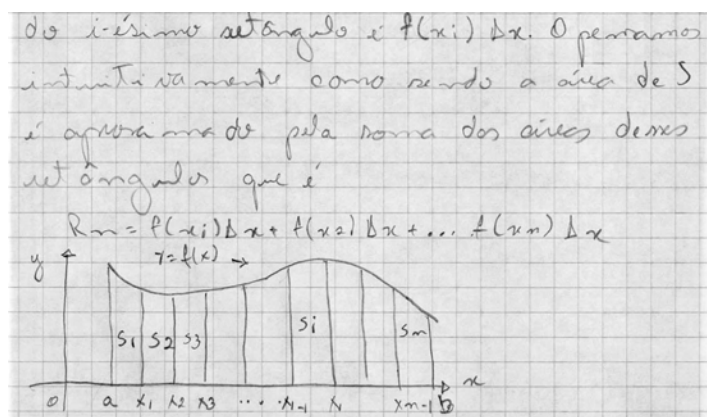 do i-ésimo retângulo é f(xi) Δx. O pensamos
intuitivamente como sendo a área de S
é aproximado pela soma das áreas desses
retângulos que é
Rn = f(xi)Δx + f(x2) Δx + ... f(xn) Δx
y Y=f(x) →
S1 S2 S3 Si Sn
0 a x1 x2 x3 ... xi-1 xi xn-1 b x